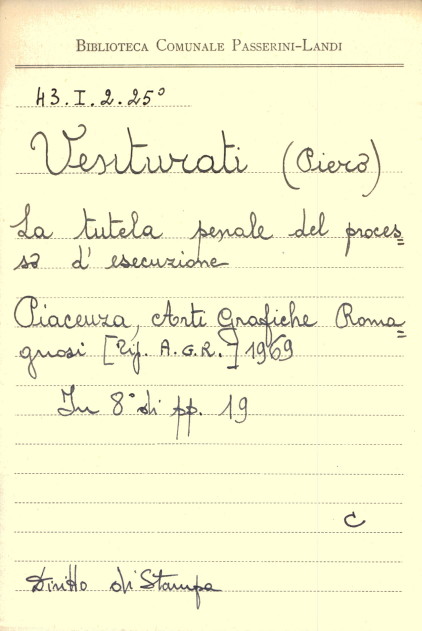 BIBLIOTECA COMUNALE PASSERINI-LANDI
43.I.2.25°
Venturati (Piero)
La tutela penale del proces=
so d'esecuzione
Piacenza, Arti Grafiche Roma=
gnosi [Tip. A.G.R.] 1969
In 8° di pp. 19
C
Diritto di Stampa